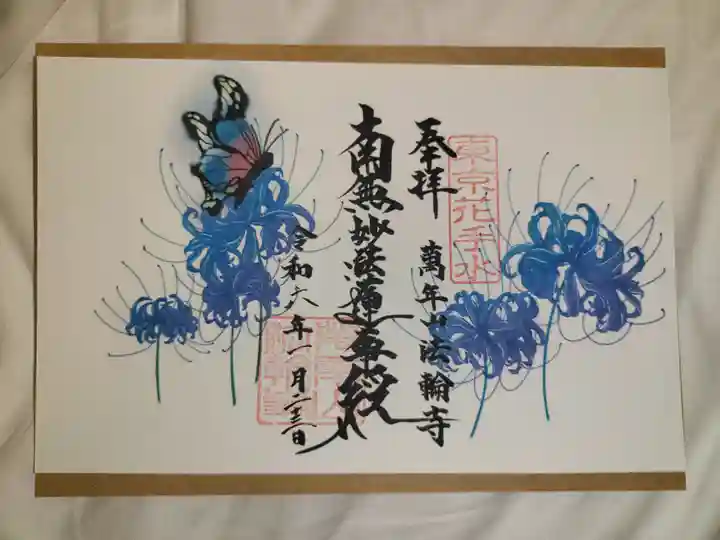 東京花手水
奉拝
萬年山法輪寺
南無妙法蓮華経
令和六年一月二十二日